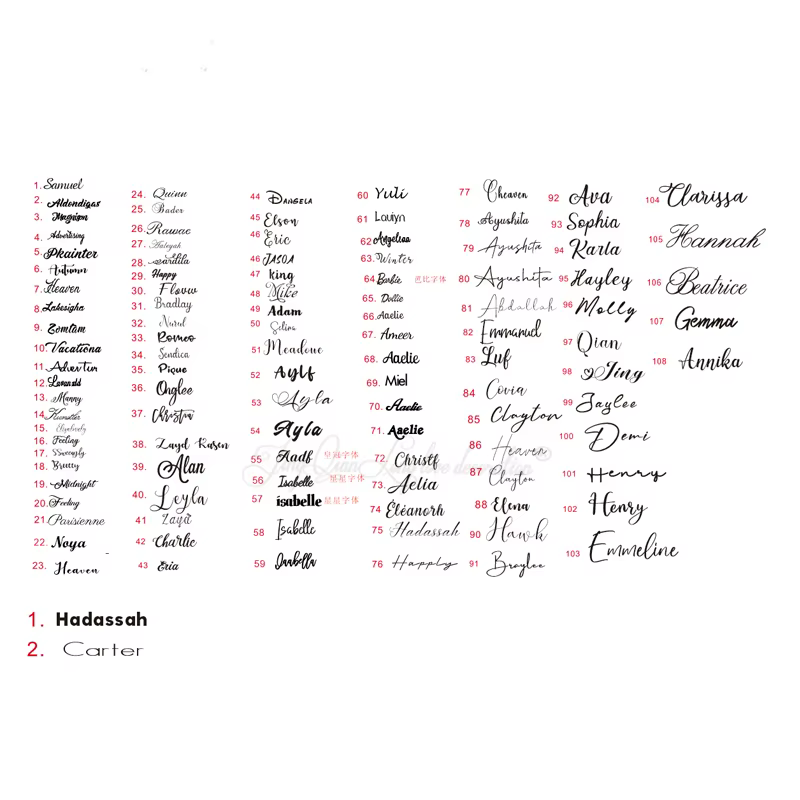 1. Samuel
2. Aldondigas
3. Magnism
4. Advertising
5. Pkainter
6. Autumn
7. Heaven
8. Lakesigha
9. Zomtam
10. Vacationa
11.
12.
13. Manny
14.
15.
16. Feeling
17.
18. Breetty
19. Midnight
20. Feeling
21. Parisienne
22. Noya
23. Heaven
24. Quinn
25. Bader
26. Rawac
27.
28.
29. Happy
30. Floww
31. Bradlay
32.
33. Romeo
34. Sendica
35. Pique
36. Onglee
37. Christin
38. Zayd Karen
39. Alan
40. Leyla
41 Zaya
42 Charlie
43 Eria
44 DANGELA
45 Elson
46 Eric
46 JASOA
47 king
48 Mike
49 Adam
50 Selina
51 Meadowe
52 Aylf
53 Ayla
54 Ayla
55 Aadf 皇冠字体
56 Isabelle 星星字体
57 isabelle 星星字体
58 Isabelle
59 Isabella
60 Yuli
61 Lauiyn
62 Angelina
63. Winter
64 Barbie 芭比字体
65. Dollie
66. Aaelie
67. Ameer
68. Aaelie
69. Miel
70. Aaelie
71. Aaelie
72. Christf
73. Aelia
74 Éléanorh
75 Hadassah
76 Happly
77 Cheaven
78 Ayushita
79 Ayushita
80 Ayushita
81 Abdallah
82 Emmanuel
83 Luf
84 Covia
85 Clayton
86 Heaven
87 Clayton
88 Elena
90 Hawk
91 Braylee
92 Ava
93 Sophia
94 Karla
95 Hayley
96 Molly
97 Qian
98 Jing
99 Jaylee
100 Demi
101 Henry
102 Henry
103 Emmeline
104 Clarissa
105 Hannah
106 Beatrice
107 Gemma
108 Annika
1. Hadassah
2. Carter